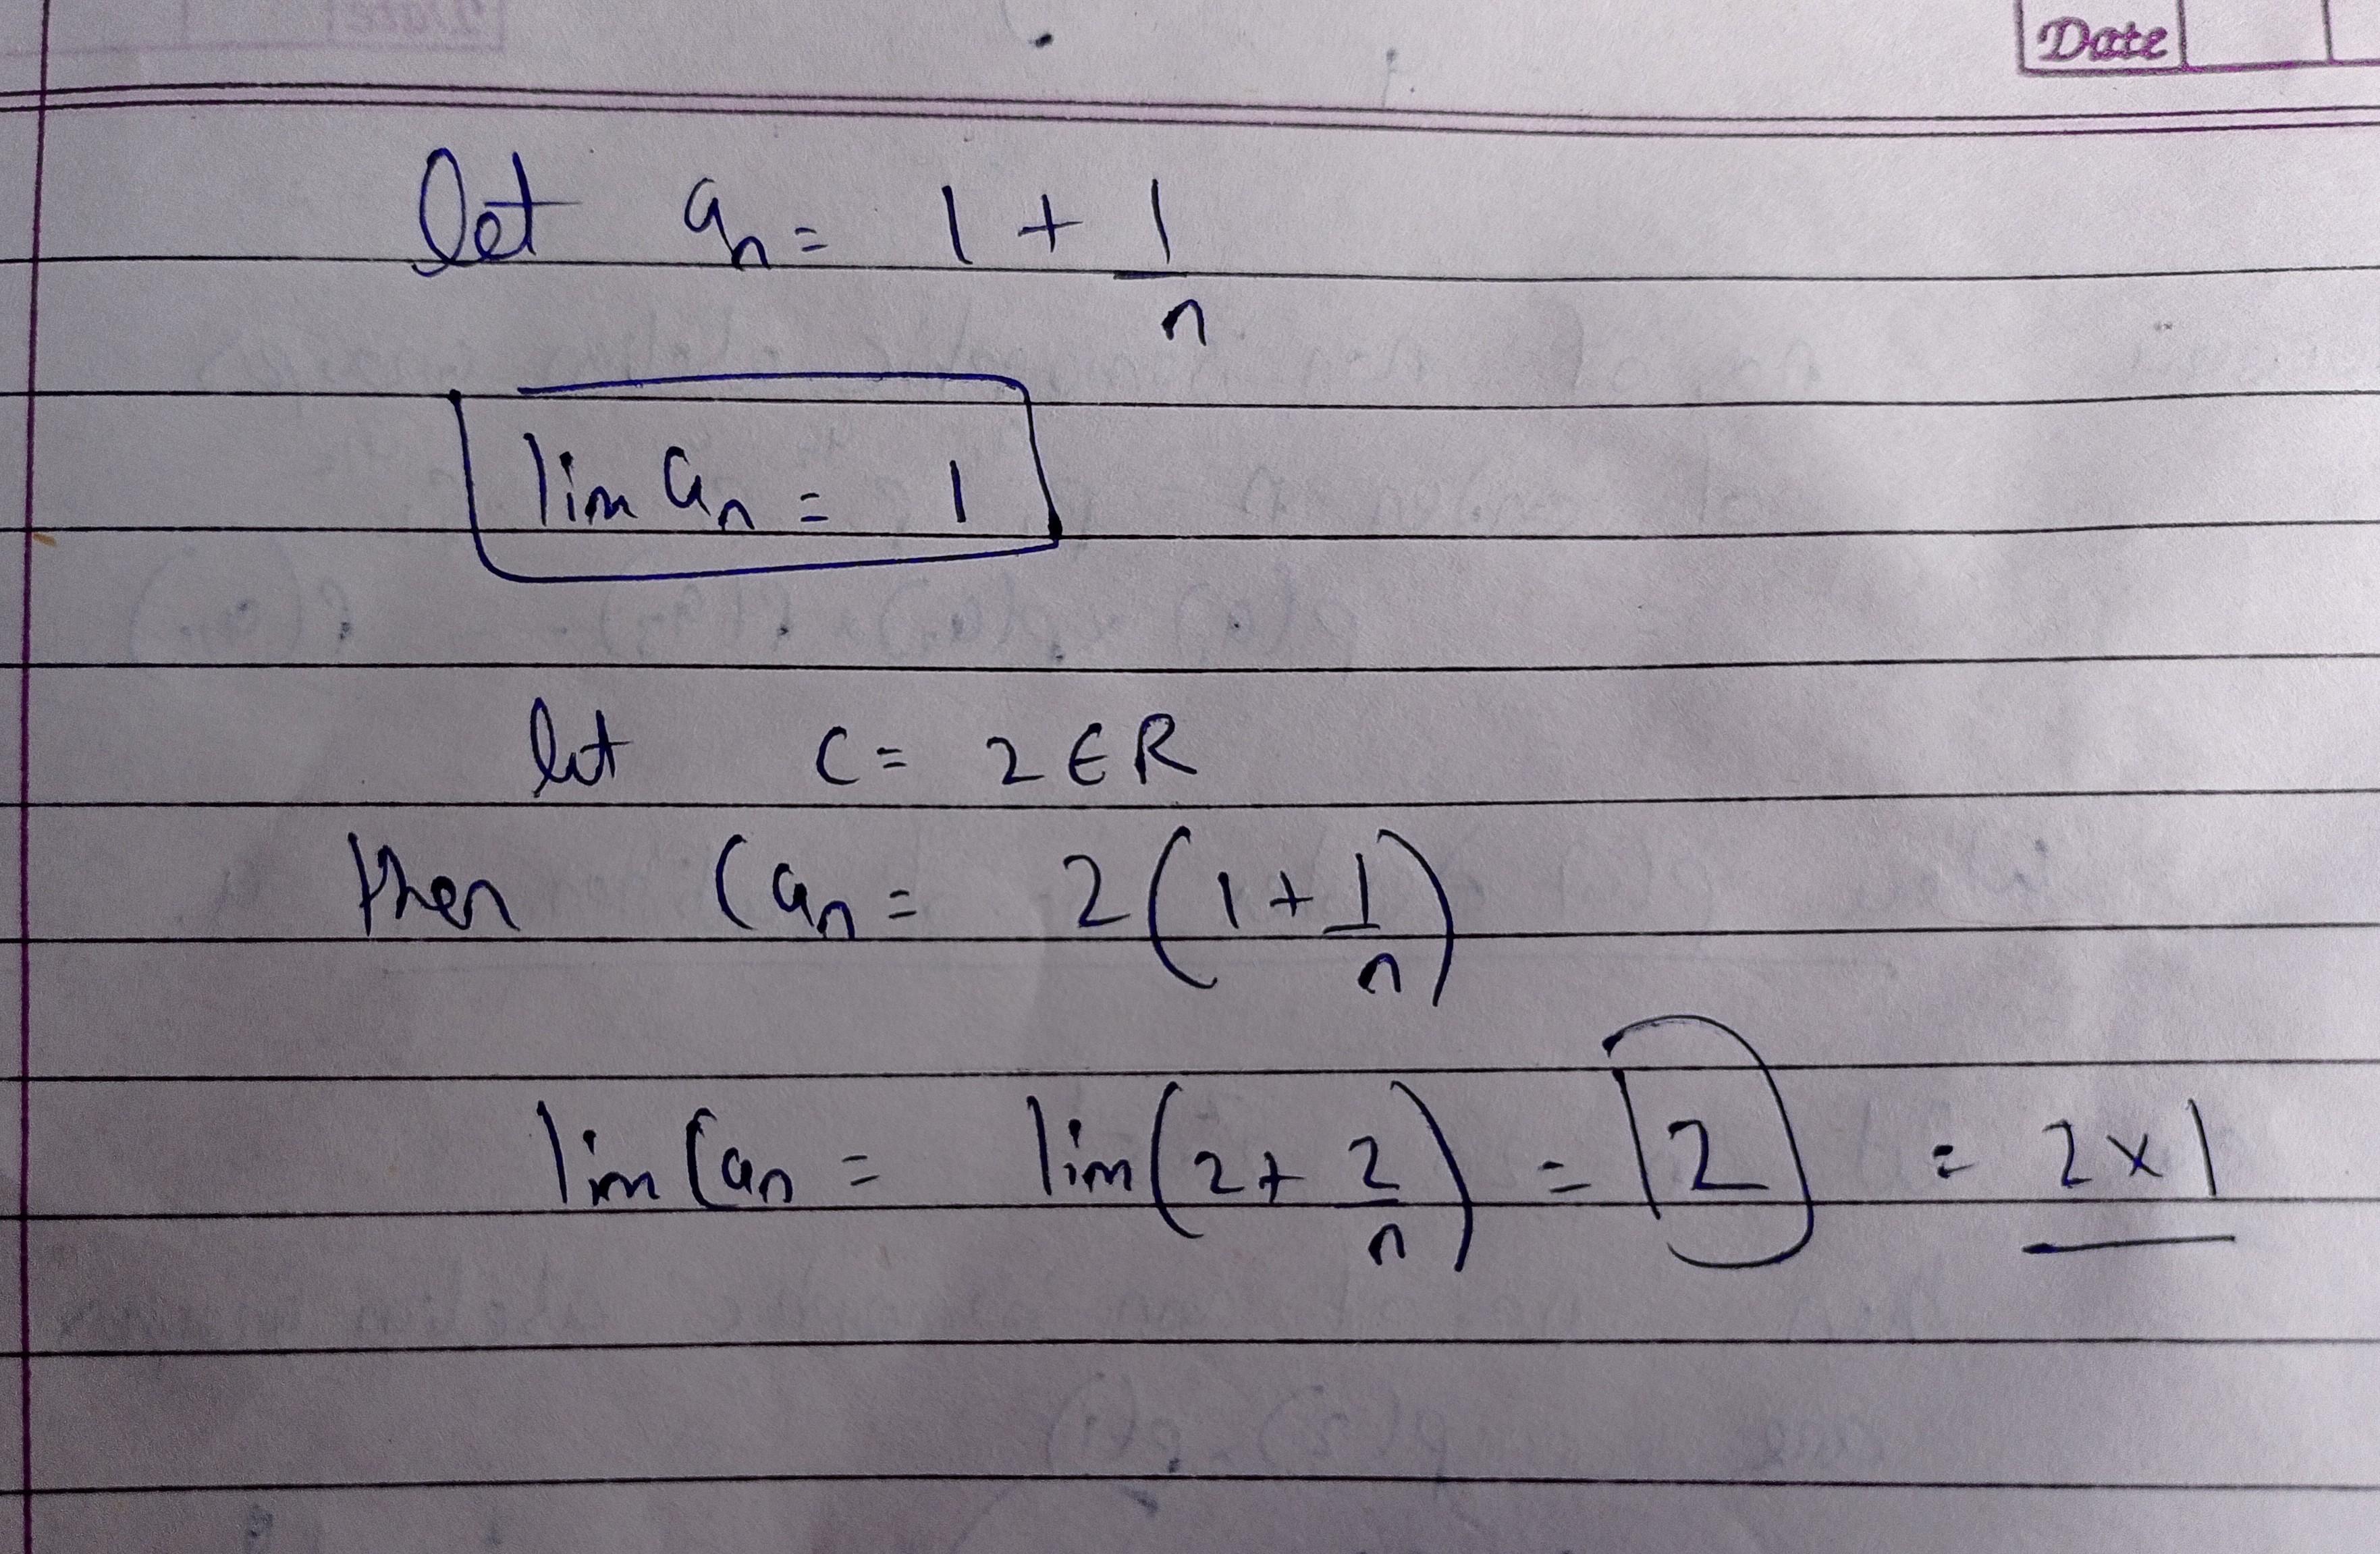 Date
let aₙ = 1 + 1/n
lim aₙ = 1
let C = 2 ∈ R
then Caₙ = 2(1 + 1/n)
lim Caₙ = lim(2 + 2/n) = 2 = 2 × 1